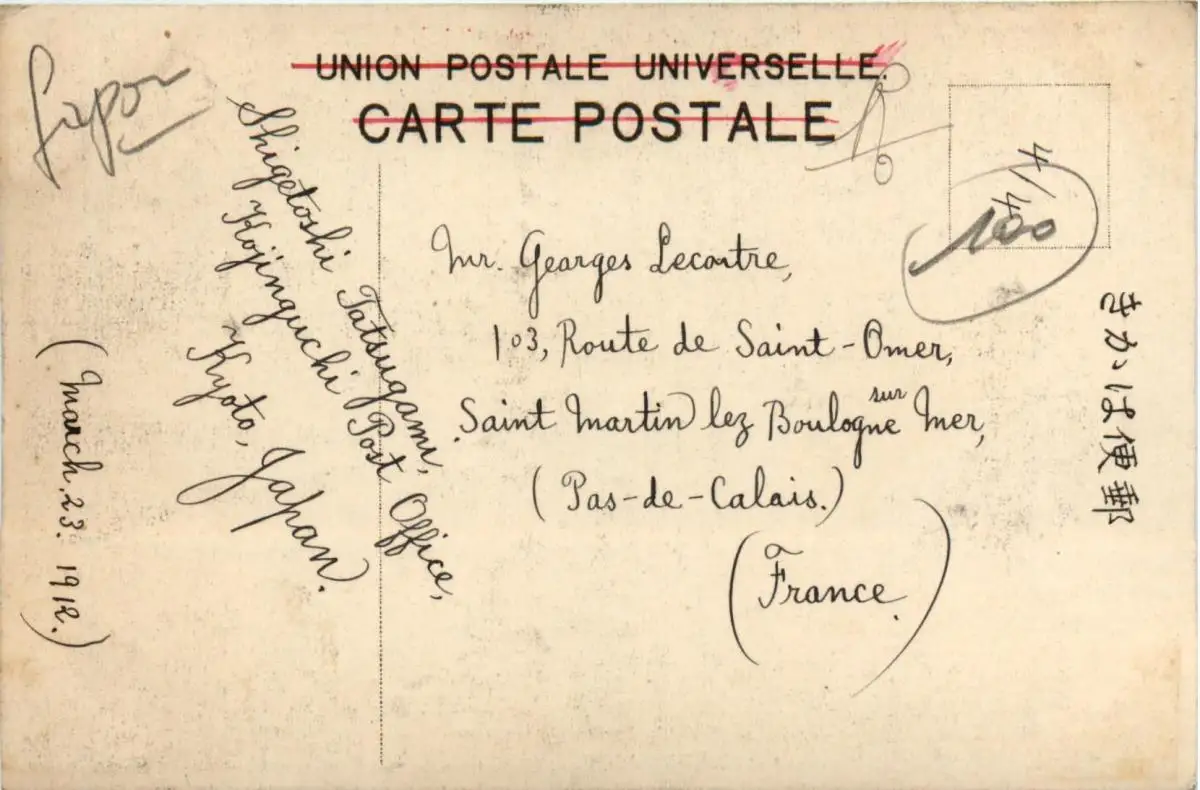 Japon
UNION POSTALE UNIVERSELLE.
CARTE POSTALE
4/40
100
Shigetoshi Tatsugami,
Kojinguchi Post Office,
Kyoto,
Japan.
(March. 23. 1912.)
Mr. Georges Lecontre,
103, Route de Saint-Omer,
Saint Martin lez Boulogne sur Mer,
(Pas-de-Calais.)
(France.)
きかは便郵